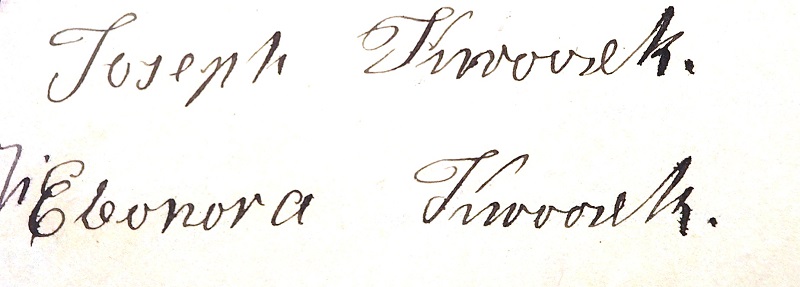 Joseph Kwoosek.
Ebonora Kwoosek.